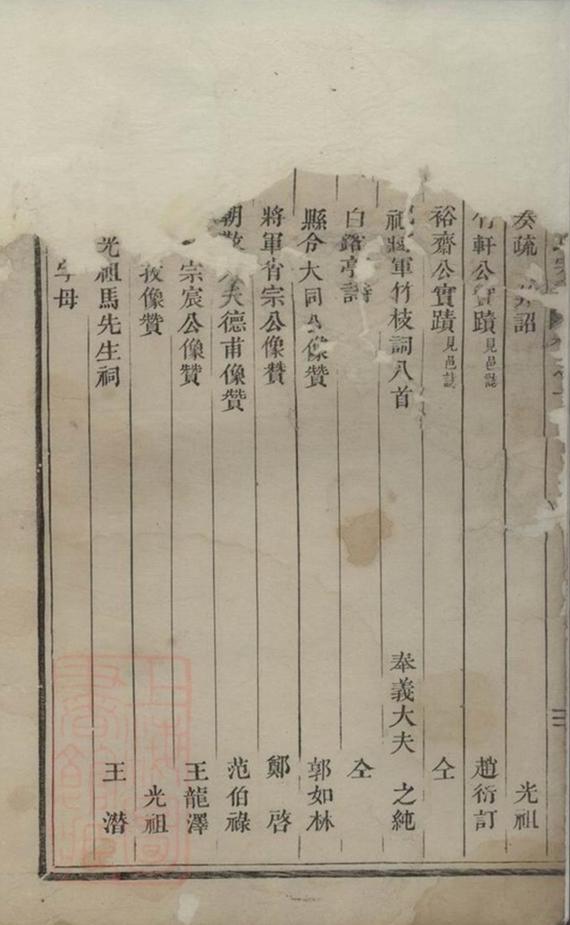 奏疏 詔 光祖
竹軒公實蹟見邑誌 趙衍訂
裕齋公實蹟見邑誌 仝
祖將軍竹枝詞八首 奉義大夫 之純
白鷺亭詩 仝
縣令大同公像贊 郭如林
將軍省宗公像贊 鄭啓
朝散大夫德甫像贊 范伯祿
宗宸公像贊 王龍澤
孜像贊 光祖
光祖馬先生祠 王潛
字母